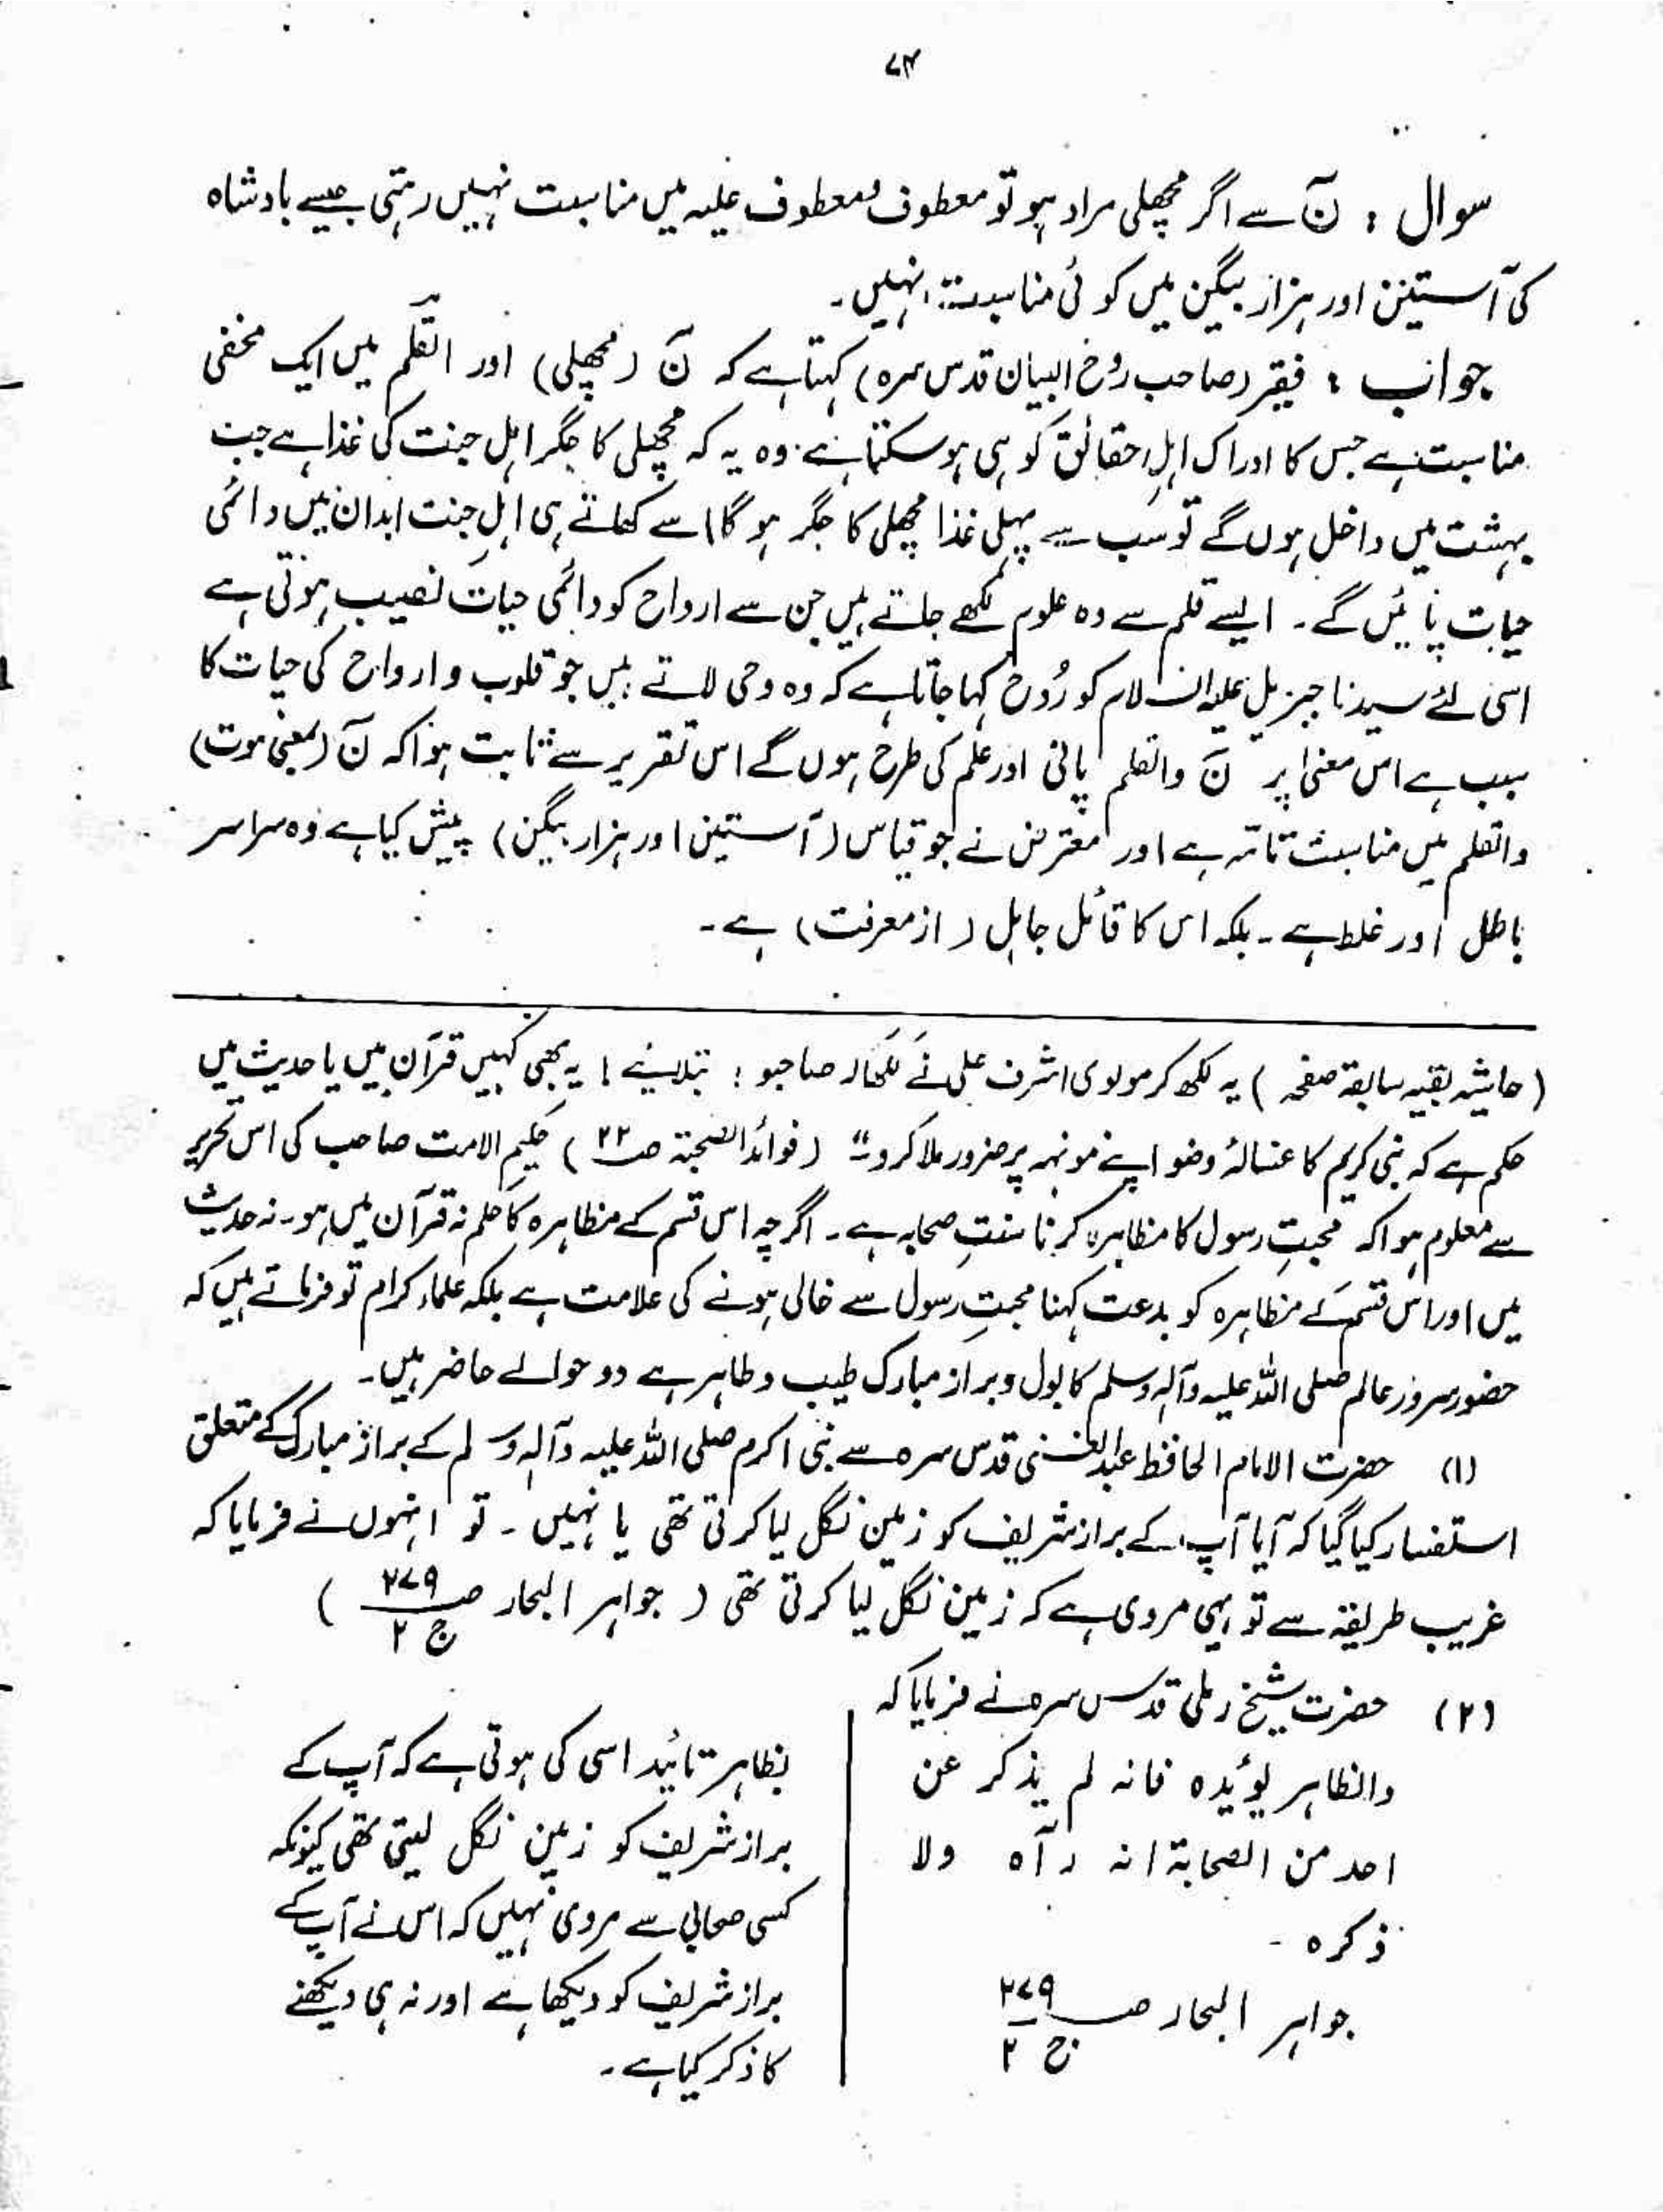 ۷۴
سوال : نٓ سے اگر مچھلی مراد ہو تو معطوف معطوف علیہ میں مناسبت نہیں رہتی جیسے بادشاہ
کی آستین اور ہزار بیگن میں کوئی مناسبت نہیں۔
جواب : فقیر (صاحب روح البیان قدس سرہ) کہتا ہے کہ نٓ (مچھلی) اور القلم میں ایک مخفی
مناسبت ہے جس کا ادراک اہلِ حقائق کو ہی ہو سکتا ہے۔ وہ یہ کہ مچھلی کا جگر اہل جنت کی غذا ہے جب
بہشت میں داخل ہوں گے تو سب سے پہلی غذا مچھلی کا جگر ہو گا اسے کھاتے ہی اہلِ جنت ابدان میں دائمی
حیات پائیں گے۔ ایسے قلم سے وہ علوم لکھے جاتے ہیں جن سے ارواح کو دائمی حیات نصیب ہوتی ہے
اسی لئے سیدنا جبریل علیہ السلام کو رُوح کہا جاتا ہے کہ وہ وحی لاتے ہیں جو قلوب و ارواح کی حیات کا
سبب ہے اس معنیٰ پر نٓ والقلم پانی اور علم کی طرح ہوں گے اس تقریر سے ثابت ہوا کہ نٓ (بمعنی حوت)
والقلم میں مناسبت تامّہ ہے اور معترض نے جو قیاس (آستین اور ہزار بیگن) پیش کیا ہے وہ سراسر
باطل اور غلط ہے۔ بلکہ اس کا قائل جاہل (از معرفت) ہے۔
(حاشیہ بقیہ سابقہ صفحہ) یہ لکھ کر مولوی اشرف علی نے للکارا صاحبو! بتلایئے! یہ بھی کہیں قرآن میں یا حدیث میں
حکم ہے کہ نبی کریم کا غسالۂ وضو اپنے مونہہ پر ضرور ملا کرو۔" (فوائد الصحبۃ صـ ۲۲) حکیم الامت صاحب کی اس تحریر
سے معلوم ہوا کہ محبتِ رسول کا مظاہرہ کرنا سنتِ صحابہ ہے۔ اگرچہ اس قسم کے مظاہرہ کا حکم نہ قرآن میں ہو۔ نہ حدیث
میں اور اس قسم کے مظاہرہ کو بدعت کہنا محبتِ رسول سے خالی ہونے کی علامت ہے بلکہ علماء کرام تو فرماتے ہیں کہ
حضور سرور عالم صلی اللہ علیہ وآلہ وسلم کا بول و براز مبارک طیب و طاہر ہے دو حوالے حاضر ہیں۔
(۱) حضرت الامام الحافظ عبدالغنی قدس سرہ سے نبی اکرم صلی اللہ علیہ وآلہ وسلم کے براز مبارک کے متعلق
استفسار کیا گیا کہ آیا آپ کے براز شریف کو زمین نگل لیا کرتی تھی یا نہیں۔ تو انہوں نے فرمایا کہ
غریب طریقہ سے تو یہی مروی ہے کہ زمین نگل لیا کرتی تھی (جواہر البحار صـ ۲۷۹ ج ۲)
(۲) حضرت شیخ رملی قدس سرہ نے فرمایا کہ
والظاہر یؤیدہ فانہ لم یذکر عن
احد من الصحابۃ انہ رآہ ولا
ذکرہ -
جواہر البحار صـ ۲۷۹ ج ۲
بظاہر تائید اسی کی ہوتی ہے کہ آپ کے
براز شریف کو زمین نگل لیتی تھی کیونکہ
کسی صحابی سے مروی نہیں کہ اس نے آپ کے
براز شریف کو دیکھا ہے اور نہ ہی دیکھنے
کا ذکر کیا ہے۔